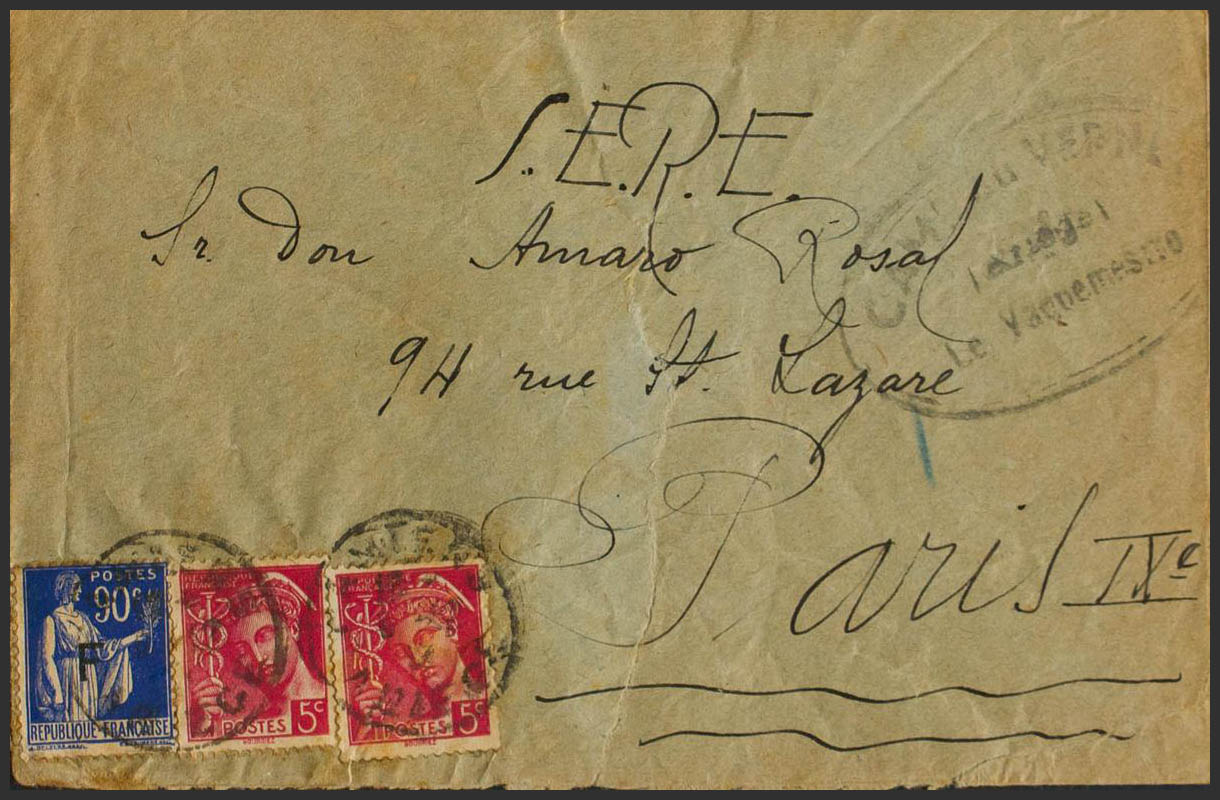 S.E.R.E.
Sr. Don Amaro Rosal
94 rue St. Lazare
Paris IXe
CAMP du VERNET
(Ariège)
Le Vaguemestre
POSTES
90c
F
REPUBLIQUE FRANÇAISE
POSTES 5c
POSTES 5c